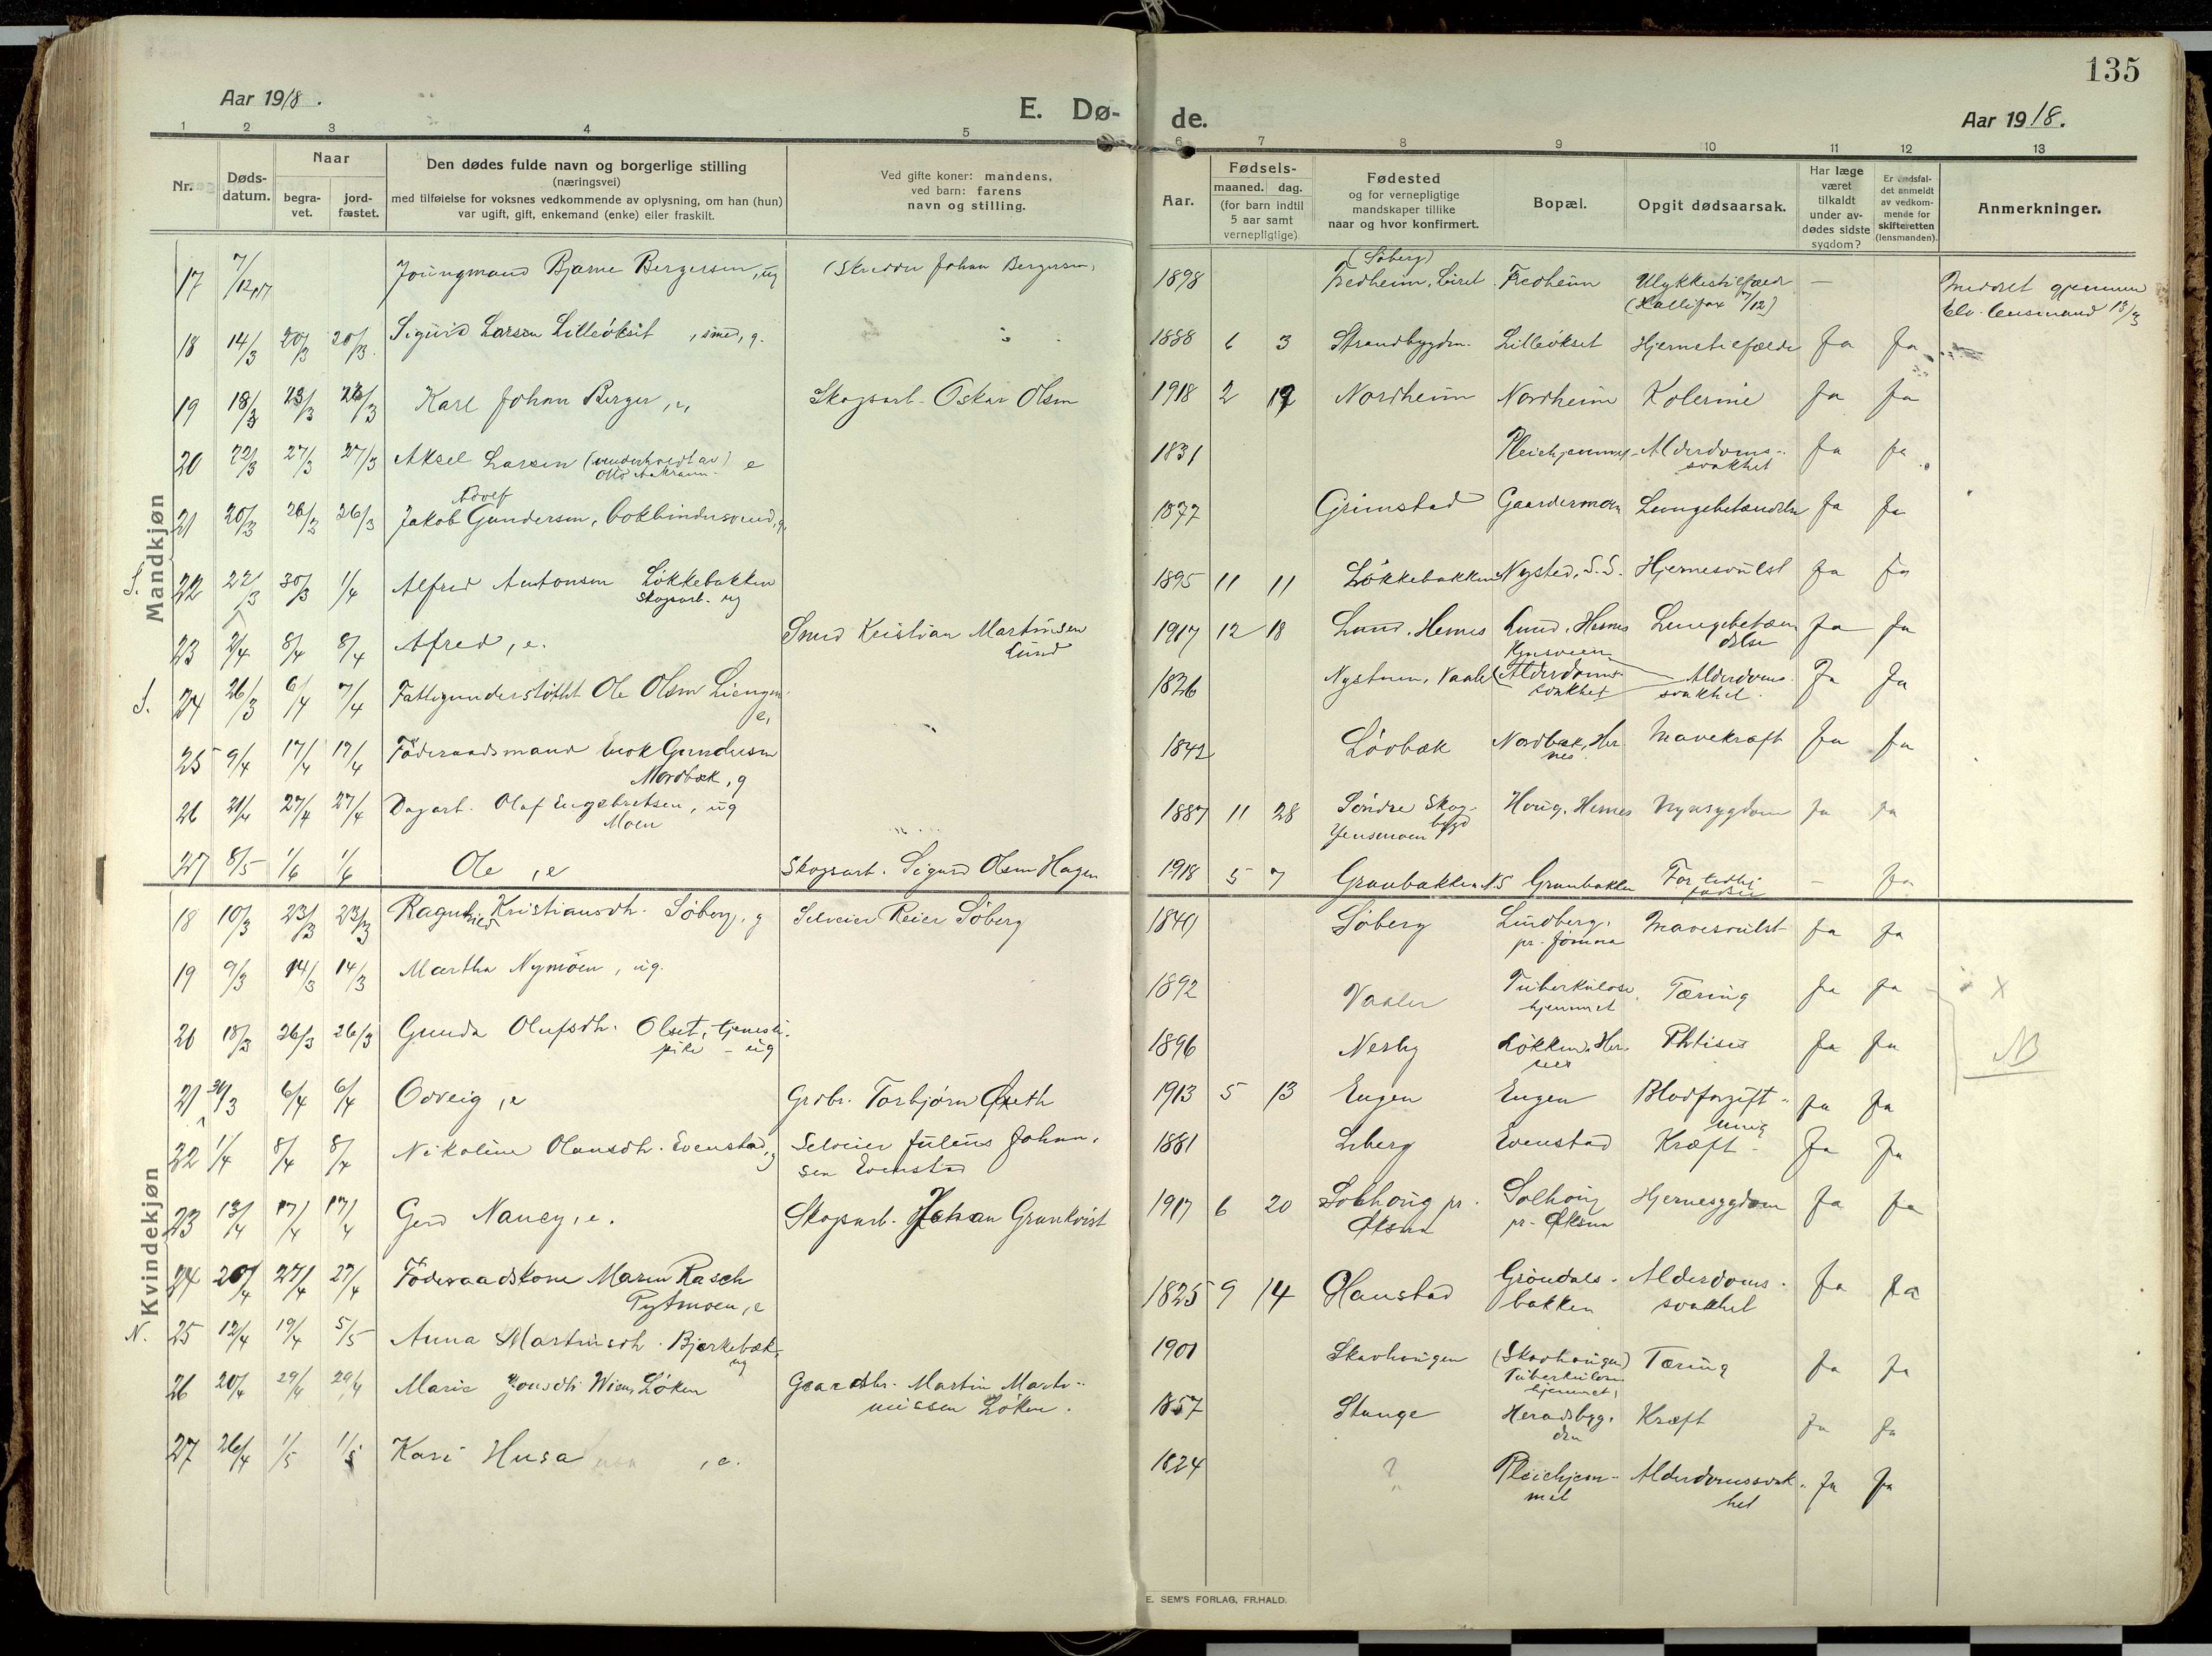 135
Aar 1918.
E. Dø-
de.
Aar 1918.
1 2 3 4 5 6 7 8 9 10 11 12 13
Nr.
Døds-
datum.
Naar
begra-
vet.
jord-
fæstet.
Den dødes fulde navn og borgerlige stilling
(næringsvei)
med tilføielse for voksnes vedkommende av oplysning, om han (hun)
var ugift, gift, enkemand (enke) eller fraskilt.
Ved gifte koner: mandens,
ved barn: farens
navn og stilling.
Aar.
Fødsels-
maaned. dag.
(for barn indtil
5 aar samt
vernepligtige)
Fødested
og for vernepligtige
mandskaper tillike
naar og hvor konfirmert.
Bopæl.
Opgit dødsaarsak.
Har læge
været
tilkaldt
under av-
dødes sidste
sygdom?
Er dødsfal-
det anmeldt
av vedkom-
mende for
skifteretten
(lensmanden).
Anmerkninger.
Mandkjøn
17 7/12 17 Joungmand Bjarne Bergersen, ug (Skredder Johan Bergersen, 1898 (Søberg)
Fredheim, Fredheim Ulykkestilfælde —
(Hallifax 7/12)
18 14/3 20/3 20/3 Sigurd Larsen Lilleökset, smed, g. 1888 6 3 Strandbygdn. Lilleökset Hjernetilfælde Ja Ja
19 18/3 23/3 23/3 Karl Johan Berger, e, Skogsarb. Oskar Olsen 1918 2 19 Nordheim Nordheim Kolerine Ja Ja
20 22/3 27/3 27/3 Aksel Larsen (understøttet av) e 1831 Pleiehjemmet Alderdoms-
svakhet Ja Ja
21 20/3 26/3 26/3 Jakob Adolf Gundersen, bokbindersvend, g. 1877 Grimstad Gaardermoen Lungebetændelse Ja Ja
S. 22 22/3 30/3 1/4 Alfred Antonsen Løkkebakken
Skogsarb. ug 1895 11 11 Løkkebakken Nysted, S.S. Hjernesvulst Ja Ja
23 2/4 8/4 8/4 Alfred, e. Smed Kristian Martinsen
Lund 1917 12 18 Lund, Hernes Lund, Hernes Lungebetæn-
delse Ja Ja
S. 24 26/3 6/4 7/4 Fattigunderstöttet Ole Olsen Liengen
e, 1826 Nystuen, Vaaler Alderdoms-
svakhet Alderdoms-
svakhet. Ja Ja
25 9/4 17/4 17/4 Föderaadsmand Enok Gundersen
Nordbæk, g 1842 Lövbæk Nordbæk, Her-
nes. Mavekræft Ja Ja
26 21/4 27/4 27/4 Dagarb. Olaf Engebretsen, ug
Moen 1887 11 28 Søndre Skog-
bygd
Jensmoen Houg, Hernes Nyresygdom Ja Ja
27 8/5 1/6 1/6 Ole, e Skogsarb. Sigurd Olsen Hagen 1918 5 7 Granbakken N.S Granbakken For tidlig
födsel — Ja
Kvindekjøn
18 10/3 23/3 23/3 Ragnhild Kristiansdtr. Søberg, g Selveier Reier Søberg 1849 Søberg Lindberg,
pr. Jømna Mavesvulst Ja Ja
19 9/3 14/3 14/3 Martha Nymöen, ug. 1892 Vaaler Tuberkulose-
hjemmet Tæring Ja Ja x
20 18/3 26/3 26/3 Gunda Olufsdtr. Olset, tjeneste-
pike - ug 1896 Nesby Løkken, Her-
nes Phtisis Ja Ja NB
21 30/3 6/4 6/4 Odveig, e Grdbr. Torbjørn Øxeth 1913 5 13 Engen Engen Blodforgift-
ning Ja Ja
22 1/4 8/4 8/4 Nikoline Olausdtr. Evenstad, g Selveier Julius Johan-
sen Evenstad 1881 Liberg Evenstad Kræft Ja Ja
23 13/4 17/4 17/4 Gerd Nancy, e. Skogsarb. Johan Grankvist 1917 6 20 Solhoug pr.
Øksna Solhoug
pr. Øksna Hjernesygdom Ja Ja
24 20/4 27/4 27/4 Føderaadskone Maren Rasch
Pytmoen, e 1825 9 14 Olaustad Gröndals-
bakken Alderdoms-
svakhet Ja Ja
N. 25 12/4 19/4 5/5 Anna Martinsdtr. Bjerkebæk,
ug 1901 Skavhaugen (Skavhaugen)
Tuberkulose-
hjemmet, Tæring Ja Ja
26 20/4 29/4 29/4 Marie Jonsdtr. Løken Gaardbr. Martin Marti-
niussen Løken. 1857 Stange Heradsbyg-
den Kræft Ja Ja
27 26/4 1/5 1/5 Kari Husa, e. 1824 ? Pleiehjem-
met Alderdomssvak-
het Ja Ja
E. SEM'S FORLAG, FR.HALD.